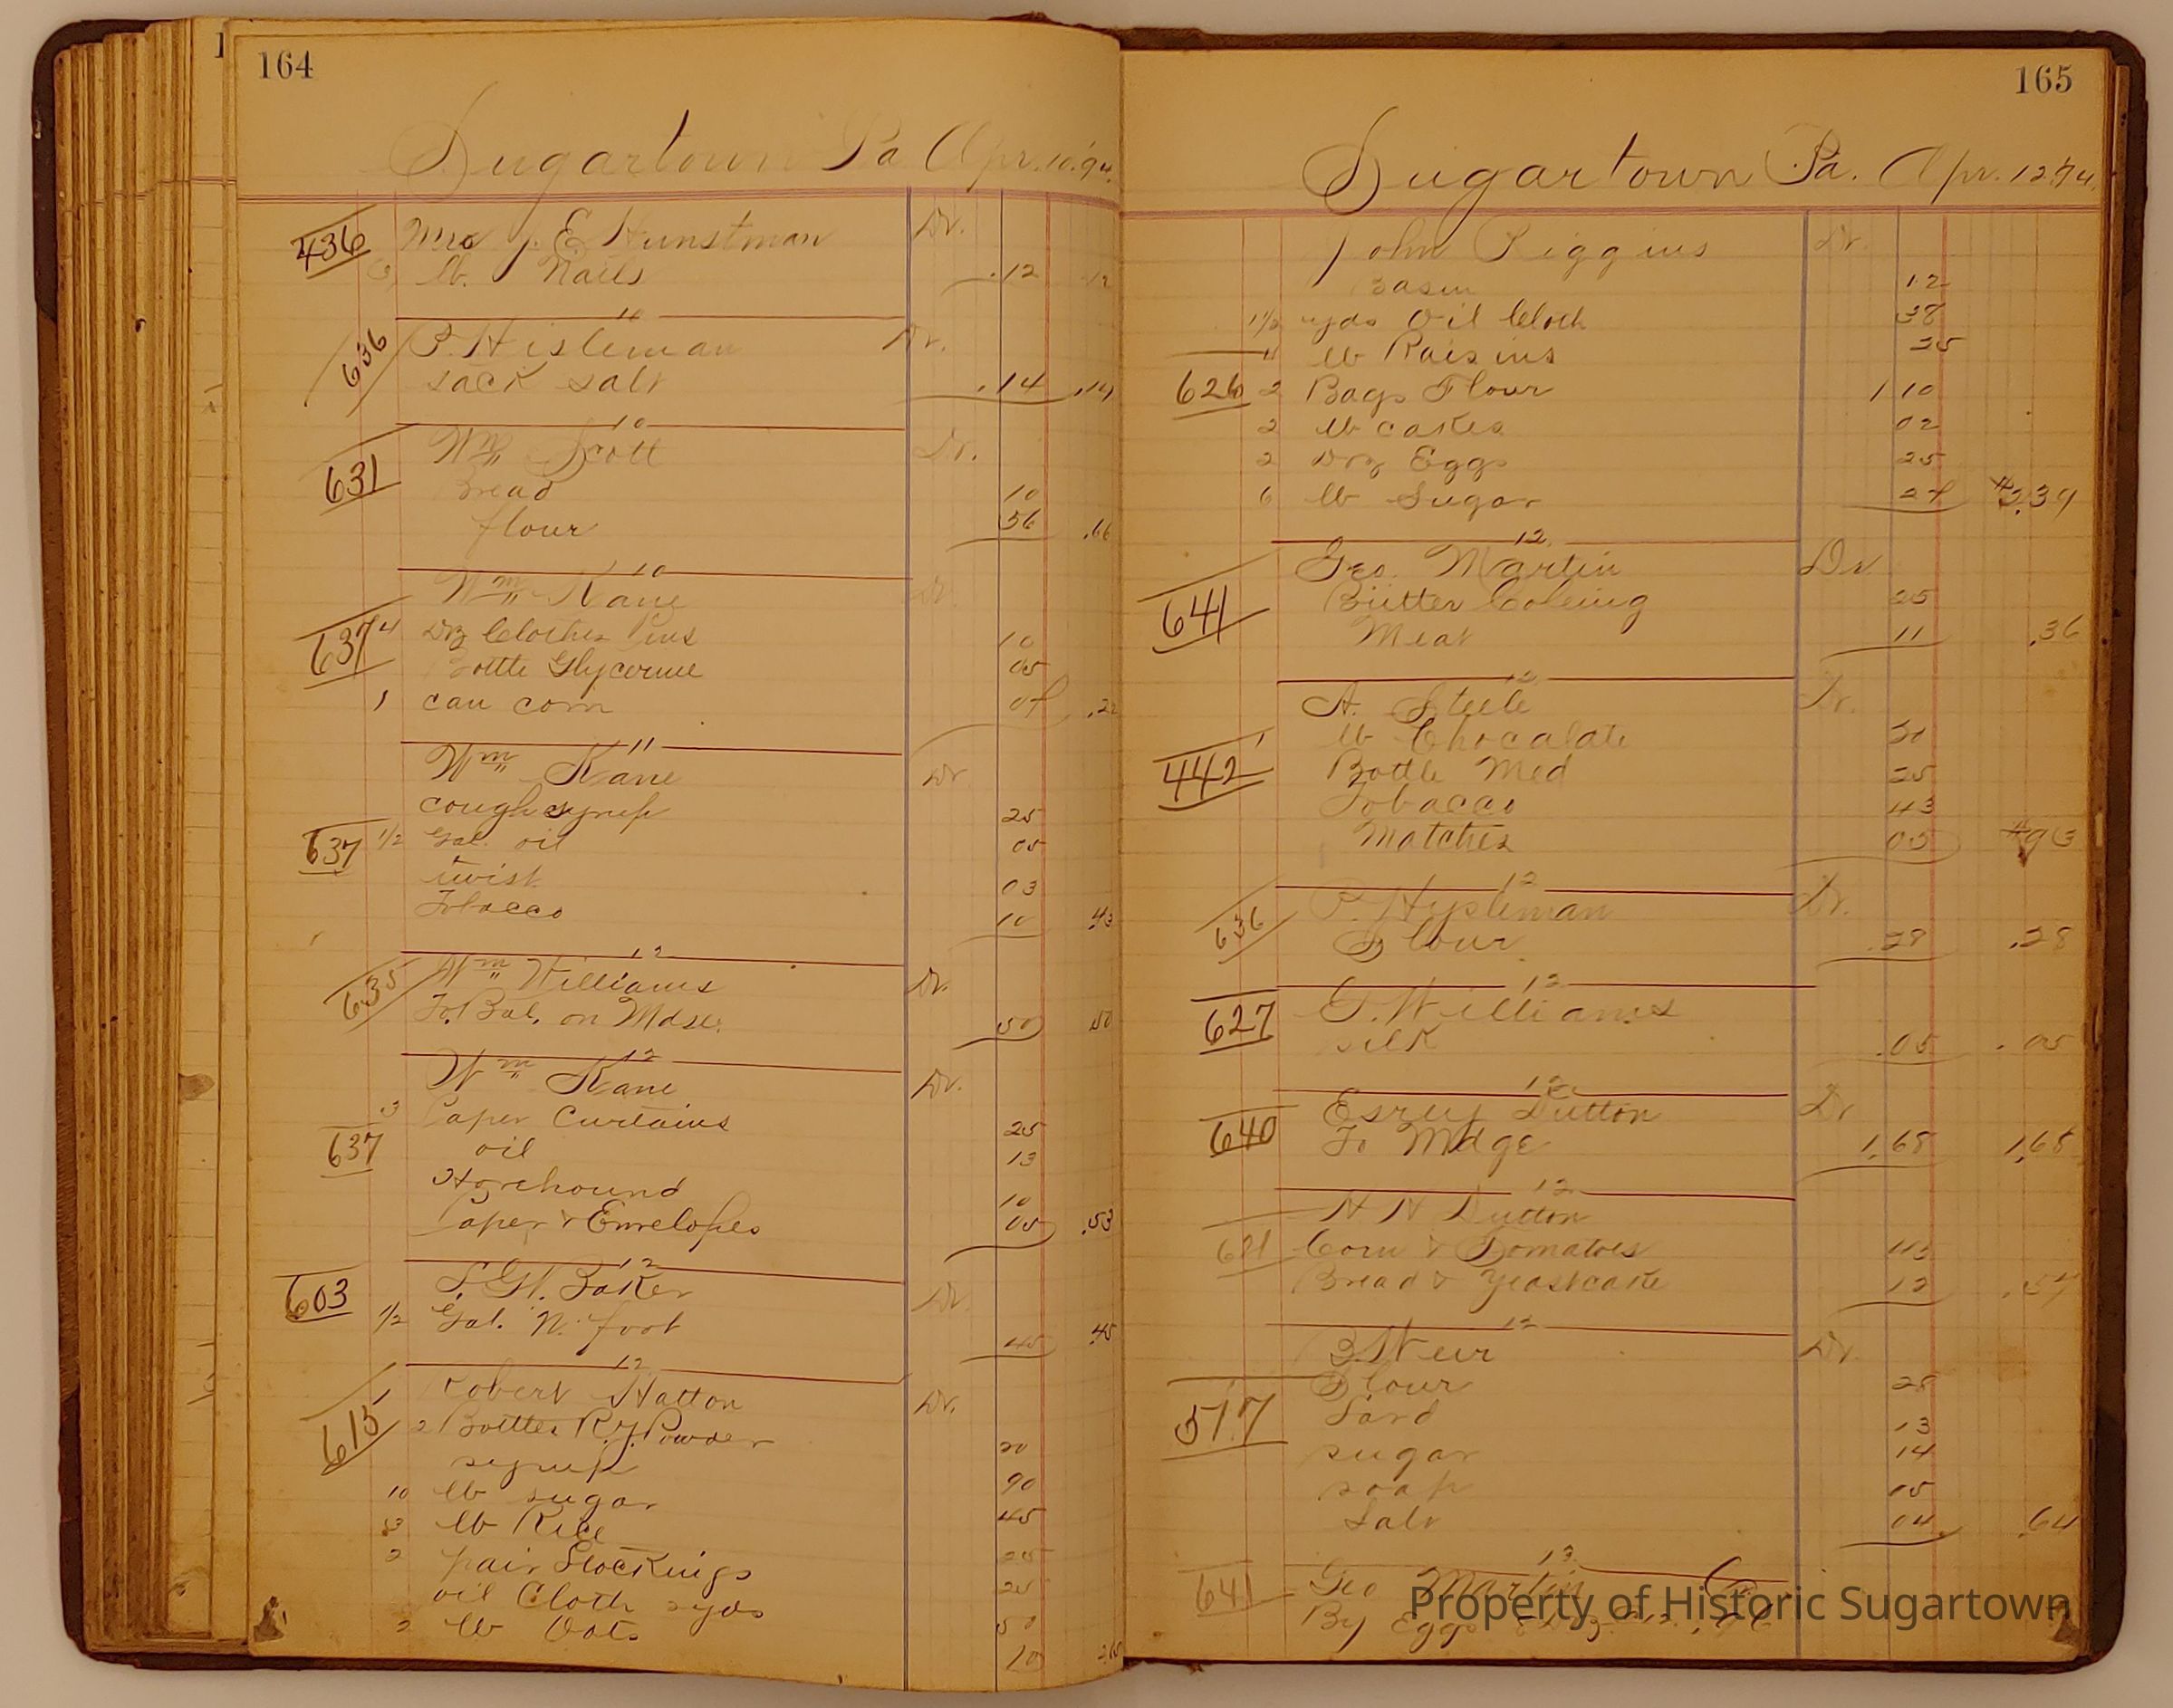 164
Sugartown Pa Apr. 10. '94.
436 Mrs J. E. Hunstman Dr.
3 lb. Nails .12 .12
10
636 P. Hisleman Dr.
sack salt .14 .14
10
631 Wm Scott Dr.
Bread 10
flour 56 .66
10
Wm Kane Dr.
637 4 Dz Clothes Pins 10
Bottle Glycerine 05
1 can corn 07 .22
11
Wm Kane Dr
cough syrup 25
637 1/2 Gal. oil 05
twist 03
Tobacco 10 43
12
635 Wm Williams Dr.
To Bal. on Mdse. 50 50
12
Wm Kane Dr.
3 Paper Curtains 25
637 oil 13
Horehound 10
Paper & Envelopes 05 .53
12
603 Baker Dr.
1/2 Gal. N. foot 45 45
12
615 Robert Hatton Dr.
2 Bottles Powder 20
syrup 90
10 lb sugar 45
3 lb Rice 25
2 pair Stockings 25
oil Cloth 2 yds 50
2 lb Oats 10 2.65
165
Sugartown Pa. Apr. 12. '94.
John Riggins Dr.
Basin 12
1 1/2 yds Oil Cloth 38
lb Raisins 25
626 2 Bags Flour 1 10
2 lb cakes 02
2 Doz Eggs 25
6 lb Sugar 27 $2.39
12
Geo. Martin Dr
641 Butter Coleing 25
Meat 11 .36
12
A. Steele Dr.
1 lb Chocalate
442 Bottle Med 25
Tobacco 43
Matches 05 93
12
636 P. Hysleman Dr.
Flour .28 .28
12
627 G. Williams
silk .05 .05
12
640 Esrey Dutton Dr
To Mdge 1.68 1.68
12
H H Dutton
Corn & Tomatoes
Bread & Yeastcake 12
12
B. Weir Dr
517 Flour 28
Lard 13
sugar 14
soap 05
Salt 04 .64
13
641 Geo Martin Cr
By Eggs
Property of Historic Sugartown